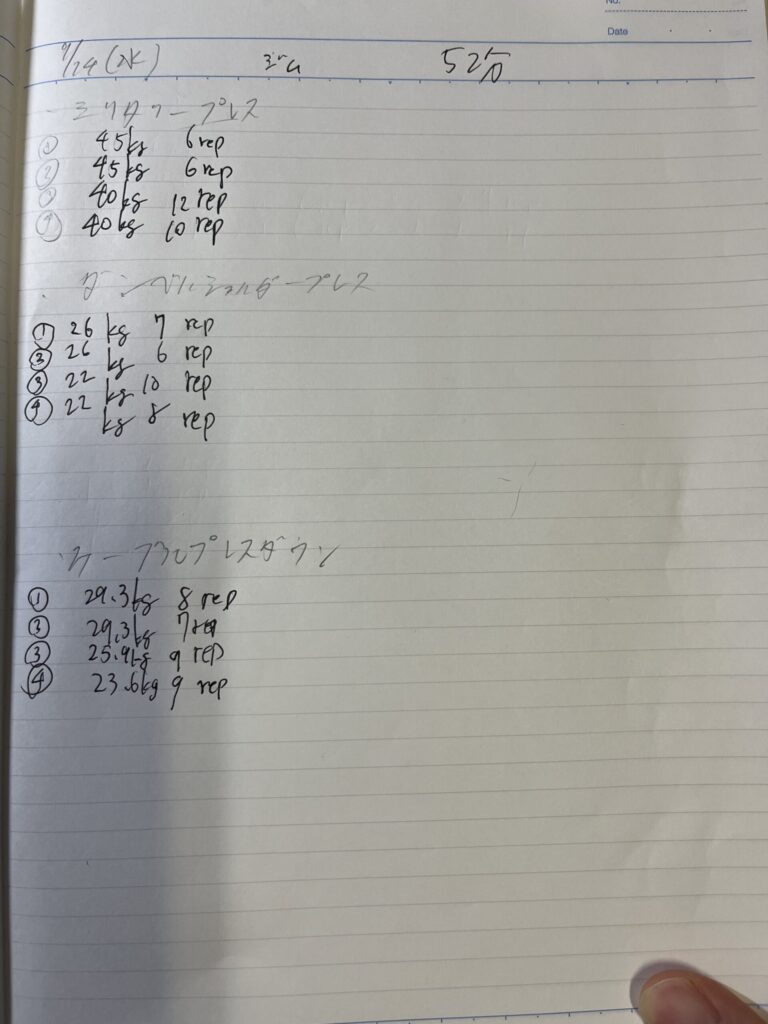 No.
Date
9/24(水) 52分
・ミリタリープレス
① 45kg 6rep
② 45kg 6rep
③ 40kg 12rep
④ 40kg 10rep
・ダンベルショルダープレス
① 26kg 7rep
② 26kg 6rep
③ 22kg 10rep
④ 22kg 8rep
・ケーブルプレスダウン
① 29.3kg 8rep
② 29.3kg 7rep
③ 25.9kg 9rep
④ 23.6kg 9rep